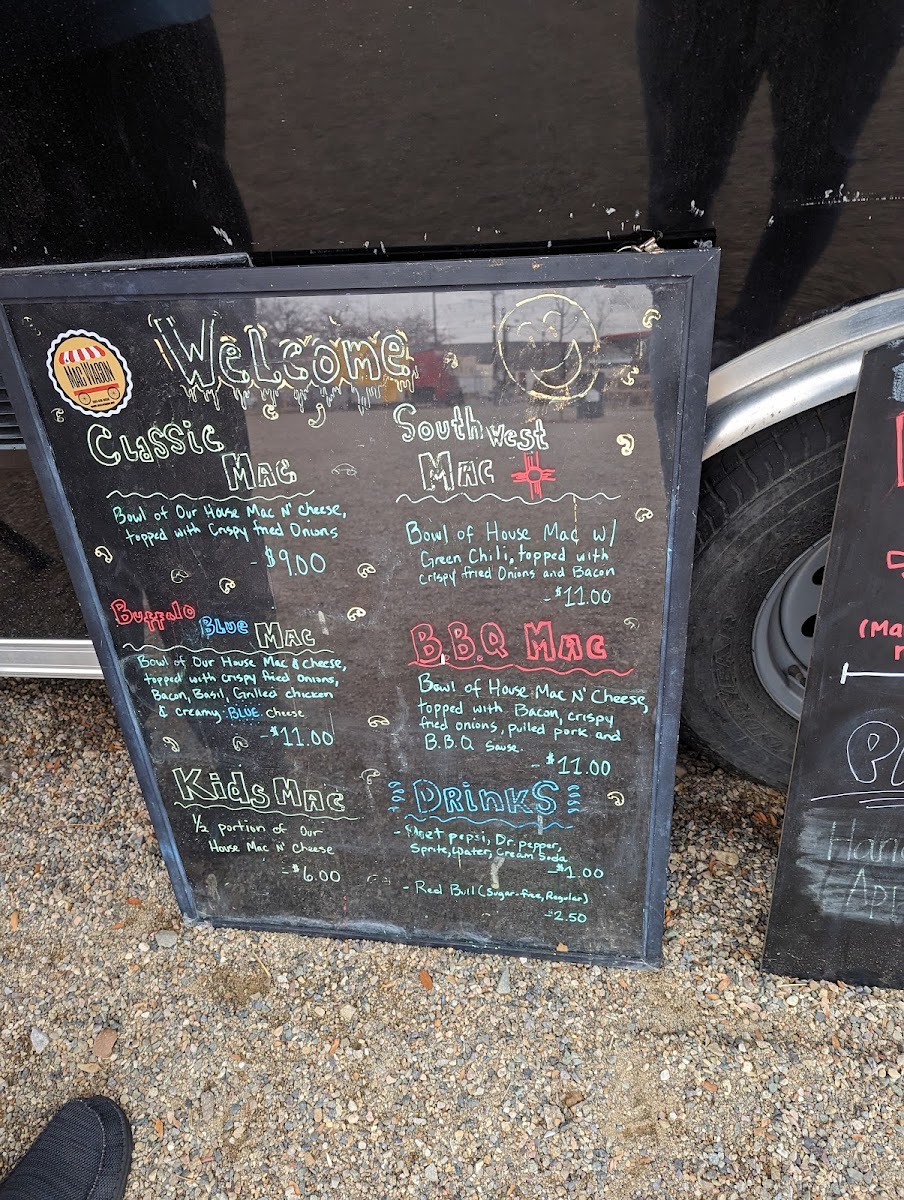 Welcome
MAC WAGON
Classic
Mac
Bowl of Our House Mac N' Cheese,
topped with Crispy fried Onions
- $9.00
South west
Mac
Bowl of House Mac w/
Green Chili, topped with
crispy fried Onions and Bacon
- $11.00
Buffalo
BLUE Mac
Bowl of Our House Mac & cheese,
topped with crispy fried onions,
Bacon, Basil, Grilled chicken
& creamy BLUE Cheese
- $11.00
B.B.Q Mac
Bowl of House Mac N' Cheese,
topped with Bacon, crispy
fried onions, pulled pork and
B.B.Q sause.
- $11.00
Kids Mac
1/2 portion of Our
House Mac N' Cheese
- $6.00
Drinks
pepsi, Dr. Pepper,
Sprite, Water, Cream Soda
- $1.00
- Red Bull (Sugar-free, Regular)
- 2.50
(Ma
Han
Ap